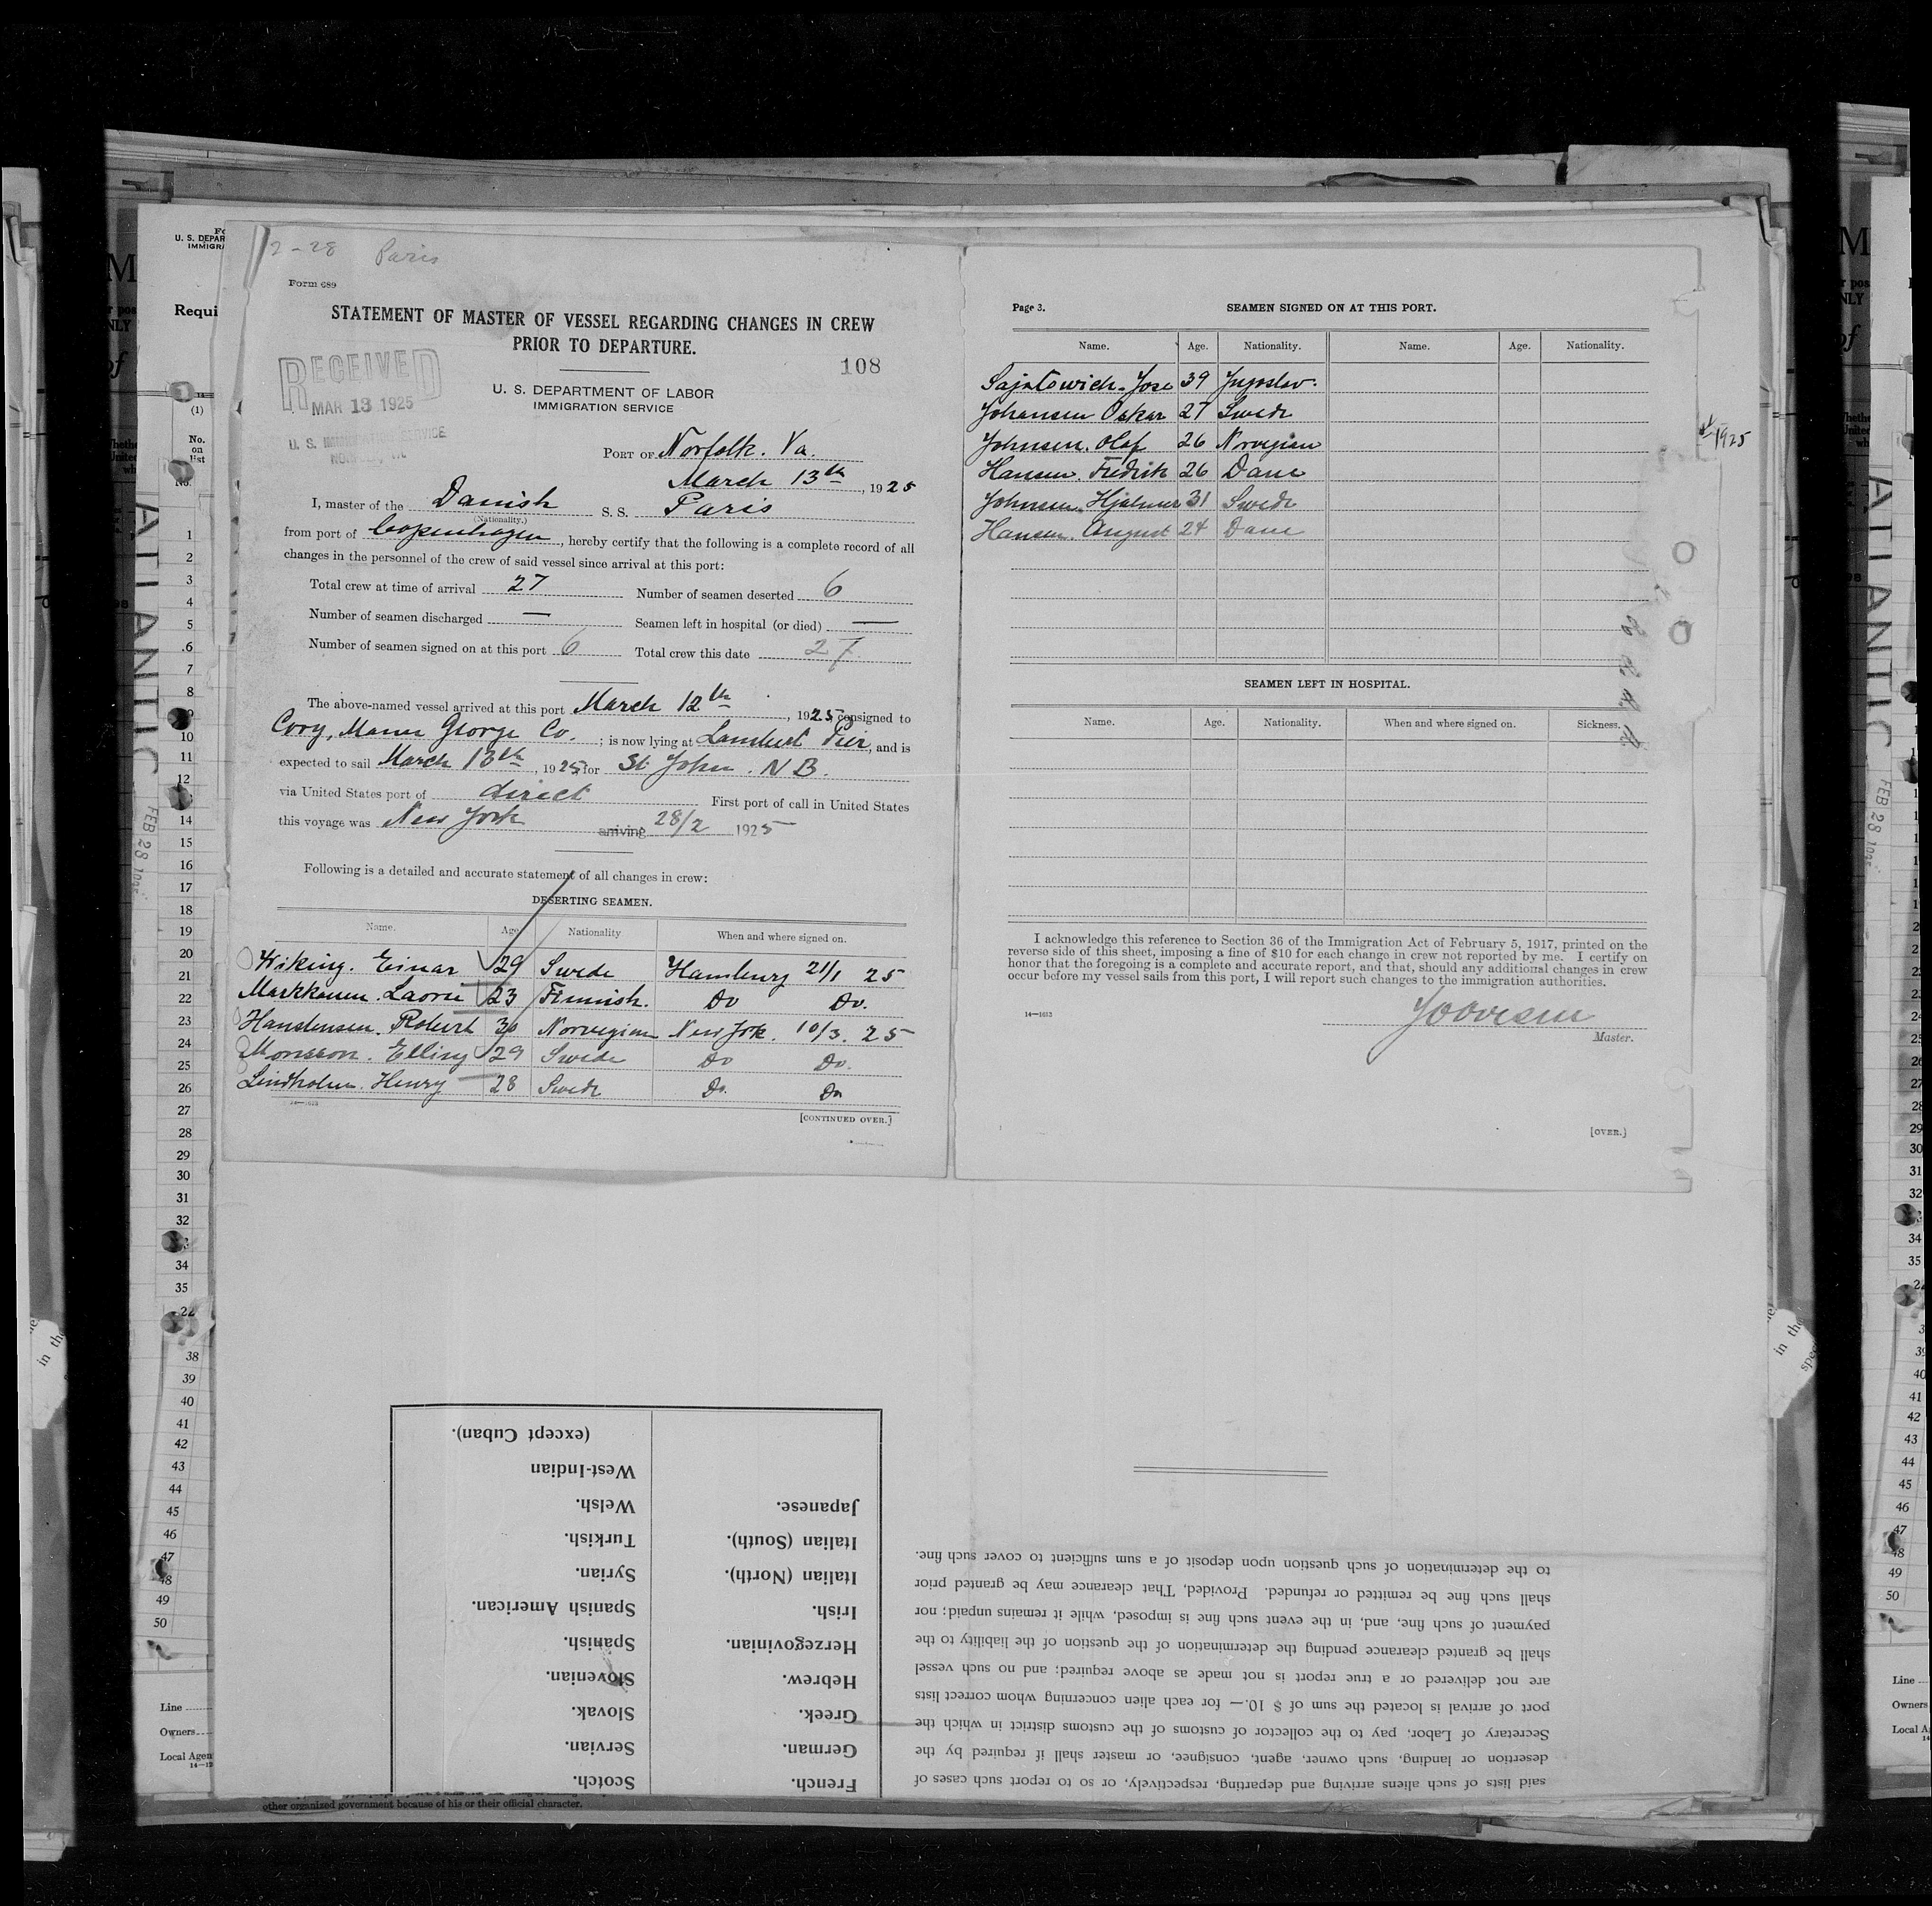 2-28 Paris
Form 689
STATEMENT OF MASTER OF VESSEL REGARDING CHANGES IN CREW
PRIOR TO DEPARTURE.
108
RECEIVED
MAR 13 1925
U. S. IMMIGRATION SERVICE
U. S. DEPARTMENT OF LABOR
IMMIGRATION SERVICE
PORT OF Norfolk. Va.
March 13th, 1925
I, master of the Danish S. S. Paris
(Nationality.)
from port of Copenhagen, hereby certify that the following is a complete record of all
changes in the personnel of the crew of said vessel since arrival at this port:
Total crew at time of arrival 27 Number of seamen deserted 6
Number of seamen discharged — Seamen left in hospital (or died) —
Number of seamen signed on at this port 6 Total crew this date 27
The above-named vessel arrived at this port March 12th, 1925, consigned to
Cory, Mann George Co.; is now lying at Lambert Pier, and is
expected to sail March 13th, 1925, for St John. N B.
via United States port of direct First port of call in United States
this voyage was New York arriving 28/2 1925
Following is a detailed and accurate statement of all changes in crew:
DESERTING SEAMEN.
Name. Age. Nationality. When and where signed on.
Wiking. Einar 29 Swede Hamburg 21/1 25
Markkanen. Laorri 23 Finnish. Do Do.
Hanstensen. Robert 30 Norvegian New York. 10/3. 25
Monsson. Elling 29 Swede Do Do.
Lindholm. Henry 28 Swede Do. Do
14—1613
[CONTINUED OVER.]
Page 3. SEAMEN SIGNED ON AT THIS PORT.
Name. Age. Nationality. Name. Age. Nationality.
Sajntowich. Jose 39 Jugoslav.
Johansen Oskar 27 Swede
Johnsen. Olaf 26 Norvegian
Hansen. Fredrik 26 Dane
Johnsen. Hjalmar 31 Swede
Hansen. August 24 Dane
1925
SEAMEN LEFT IN HOSPITAL.
Name. Age. Nationality. When and where signed on. Sickness.
I acknowledge this reference to Section 36 of the Immigration Act of February 5, 1917, printed on the
reverse side of this sheet, imposing a fine of $10 for each change in crew not reported by me. I certify on
honor that the foregoing is a complete and accurate report, and that, should any additional changes in crew
occur before my vessel sails from this port, I will report such changes to the immigration authorities.
14—1613
Master.
[OVER.]
U. S. DEPAR
IMMIGRA
Requi
(1)
No.
on
list
ATLANTIC
FEB 28 1925
1
2
3
4
5
6
7
8
10
11
12
14
15
16
17
18
19
20
21
22
23
24
25
26
27
28
29
30
31
32
34
35
38
39
40
41
42
43
44
45
46
47
48
49
50
Line
Owners
Local Agen
said lists of such aliens arriving and departing, respectively, or so to report such cases of
desertion or landing, such owner, agent, consignee, or master shall if required by the
Secretary of Labor, pay to the collector of customs of the customs district in which the
port of arrival is located the sum of $ 10.— for each alien concerning whom correct lists
are not delivered or a true report is not made as above required; and no such vessel
shall be granted clearance pending the determination of the question of the liability to the
payment of such fine, and, in the event such fine is imposed, while it remains unpaid; nor
shall such fine be remitted or refunded. Provided, That clearance may be granted prior
to the determination of such question upon deposit of a sum sufficient to cover such fine.
French. Scotch.
German. Servian.
Greek. Slovak.
Hebrew. Slovenian.
Herzegovinian. Spanish.
Irish. Spanish American.
Italian (North). Syrian.
Italian (South). Turkish.
Japanese. Welsh.
West-Indian
(except Cuban).
other organized government because of his or their official character.